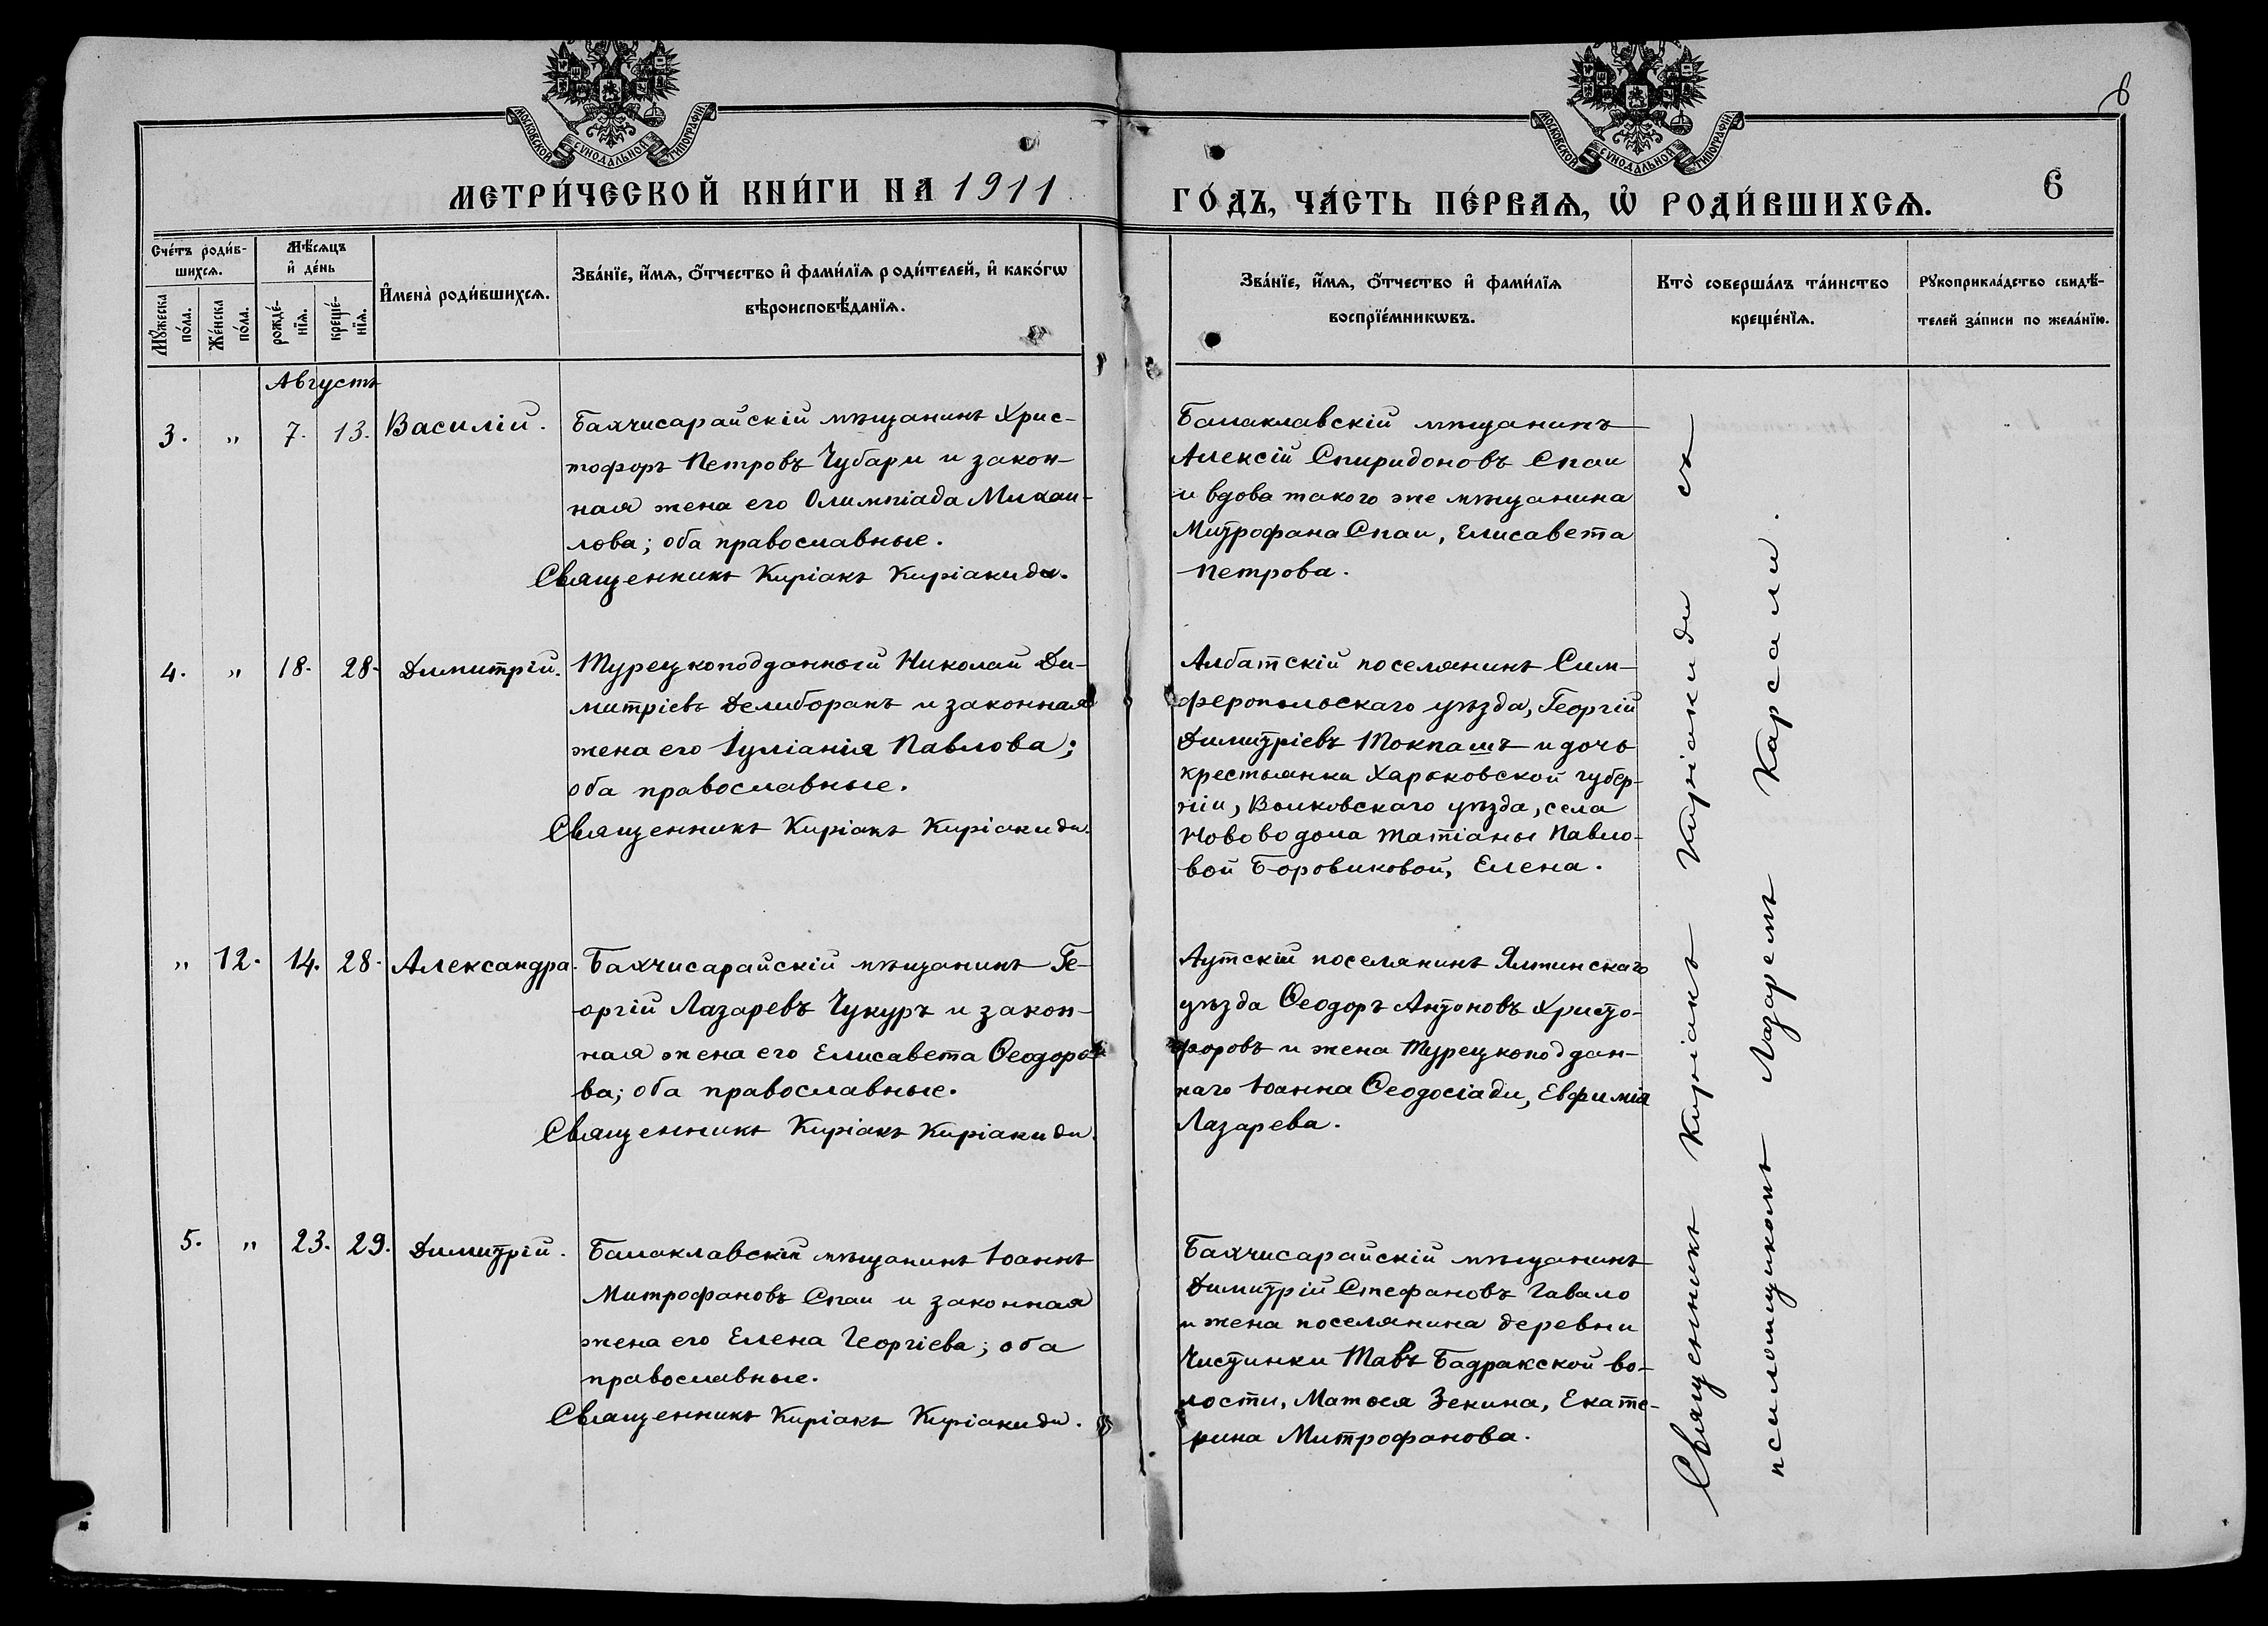 МОСКОВСКОЙ СѴНОДАЛЬНОЙ ТИПОГРАФІИ
МОСКОВСКОЙ СѴНОДАЛЬНОЙ ТИПОГРАФІИ
6
6
МЕТРИ́ЧЕСКОЙ КНИ́ГИ НА 1911
ГО́ДЪ, ЧА́СТЬ ПЕ́РВАѦ, Ѡ҆ РОДИ́ВШИХСѦ.
Сче́тъ роди́в-
шихсѧ.
Мꙋ́жеска по́ла.
Же́нска по́ла.
Мѣ́сѧцъ
и҆ де́нь
рожде́-
нїѧ.
креще́-
нїѧ.
И҆мена̀ роди́вшихсѧ.
Зва́нїе, и҆́мѧ, ѻ҆́тчество и҆ фами́лїѧ роди́телей, и҆ како́гѡ
вѣроисповѣ́данїѧ.
Зва́нїе, и҆́мѧ, ѻ҆́тчество и҆ фами́лїѧ
воспрїе́мникѡвъ.
Кто̀ соверша́лъ та́инство
креще́нїѧ.
Рꙋкоприкла́дство свидѣ́-
телей за́писи по жела́нїю.
Августъ
3. " 7. 13. Василій.
Бахчисарайскій мѣщанинъ Хрис-
тофоръ Петровъ Чубари и закон-
ная жена его Олимпіада Михаи-
лова; оба православные.
Священникъ Киріакъ Киріакиди.
Балаклавскій мѣщанинъ
Алексій Спиридоновъ Спаи
и вдова такого же мѣщанина
Митрофана Спаи, Елисавета
Петрова.
4. " 18. 28. Димитрій.
Турецкоподданный Николай Ди-
митріевъ Делиборанъ и законная
жена его Іуліанія Павлова;
оба православные.
Священникъ Киріакъ Киріакиди.
Албатскій поселянинъ Сим-
феропольскаго уѣзда, Георгій
Димитріевъ Токпашъ и дочь
крестьянки Харьковской губер-
ніи, Волковскаго уѣзда, села
Нововодола Татіаны Павло-
вой Боровиковой, Елена.
" 12. 14. 28. Александра.
Бахчисарайскій мѣщанинъ Ге-
оргій Лазаревъ Чукуръ и закон-
ная жена его Елисавета Ѳеодоро-
ва; оба православные.
Священникъ Киріакъ Киріакиди.
Аутскій поселянинъ Ялтинскаго
уѣзда Ѳеодоръ Антоновъ Христо-
форовъ и жена Турецкоподдан-
наго Іоанна Ѳеодосіади, Евфимія
Лазарева.
5. " 23. 29. Димитрій.
Балаклавскій мѣщанинъ Іоаннъ
Митрофановъ Спаи и законная
жена его Елена Георгіева; оба
православные.
Священникъ Киріакъ Киріакиди.
Бахчисарайскій мѣщанинъ
Димитрій Стефановъ Гавало
и жена поселянина деревни
Чистинки Тавъ Бадракской во-
лости, Матѳея Зенина, Екате-
рина Митрофанова.
Священникъ Киріакъ Киріакиди съ
псаломщикомъ Лазаремъ Карсали.